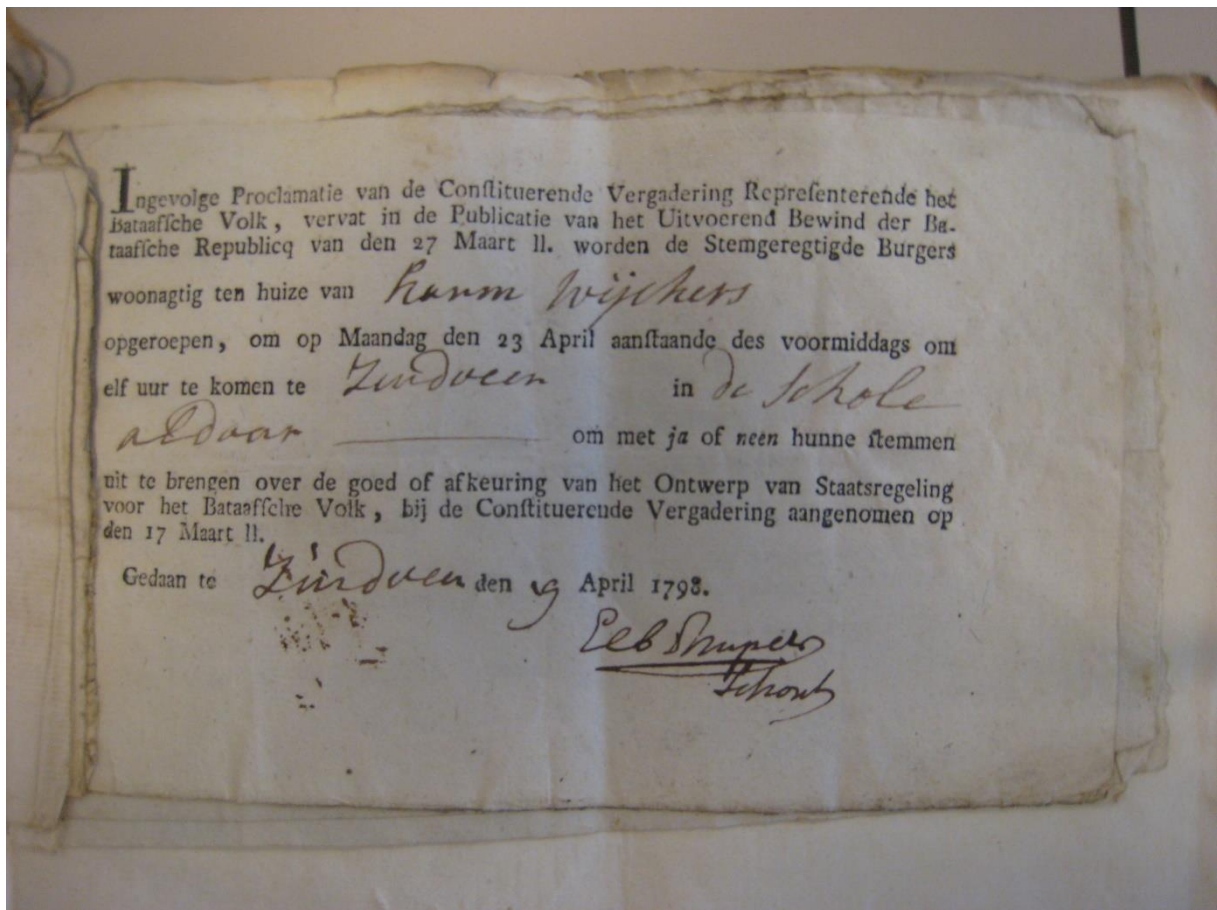 Ingevolge Proclamatie van de Conſtituerende Vergadering Repreſenterende het
Bataafſche Volk, vervat in de Publicatie van het Uitvoerend Bewind der Ba-
taafſche Republicq van den 27 Maart ll. worden de Stemgeregtigde Burgers
woonagtig ten huize van Harm Wijchers
opgeroepen, om op Maandag den 23 April aanſtaande des voormiddags om
elf uur te komen te Zuidveen in de Schole
aldaar om met ja of neen hunne ſtemmen
uit te brengen over de goed of afkeuring van het Ontwerp van Staatsregeling
voor het Bataafſche Volk, bij de Conſtituerende Vergadering aangenomen op
den 17 Maart ll.
Gedaan te Zuidveen den 9 April 1798.
Schout